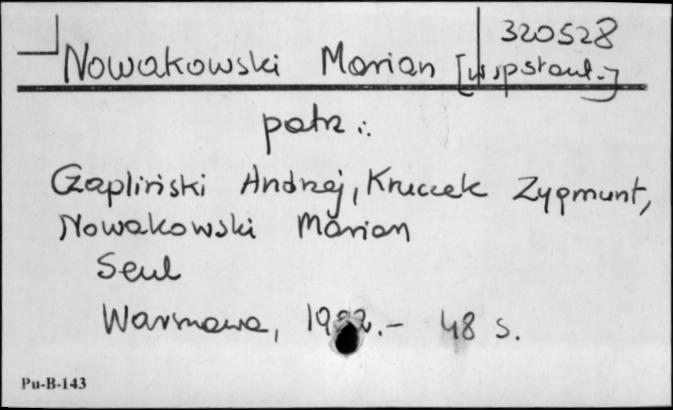 320528
Nowakowski Marian [współaut.]
patrz.:
Czapliński Andrzej, Kruczek Zygmunt,
Nowakowski Marian
Seul
Warszawa, 1982.- 48 s.
Pu-B-143